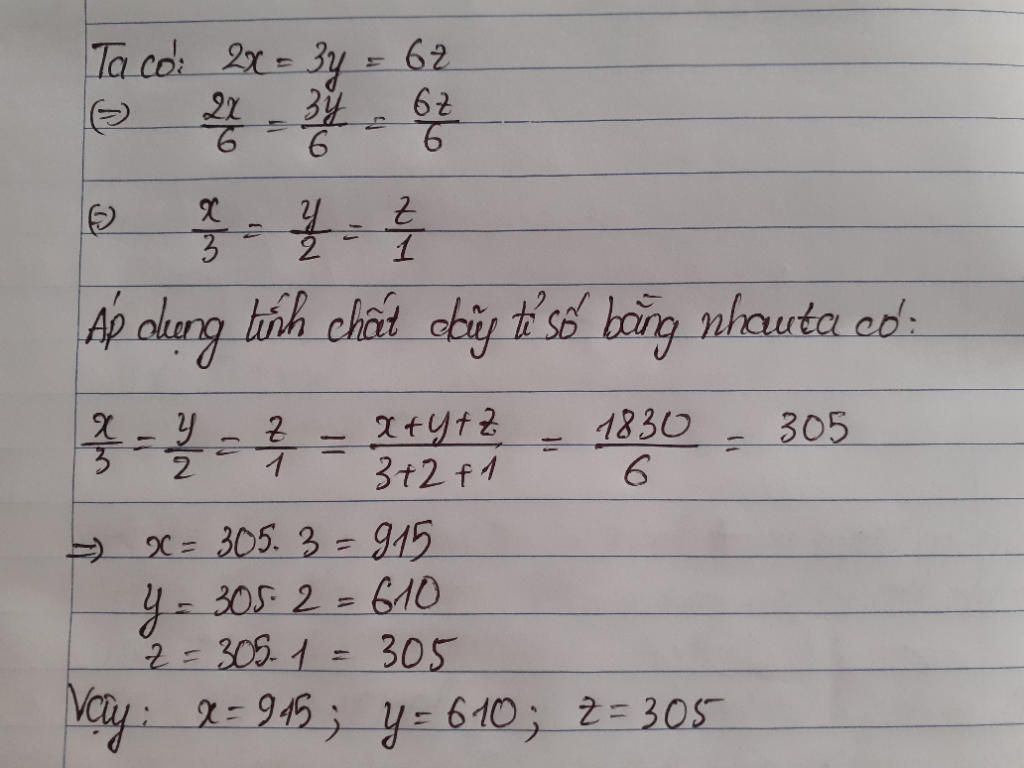 Ta có: 2x = 3y = 6z
(=>) 2x/6 = 3y/6 = 6z/6
(=) x/3 = y/2 = z/1
Áp dụng tính chất dãy tỉ số bằng nhau ta có:
x/3 = y/2 = z/1 = x+y+z/3+2+1 = 1830/6 = 305
=> x = 305. 3 = 915
y = 305. 2 = 610
z = 305. 1 = 305
Vậy: x = 915; y = 610; z = 305